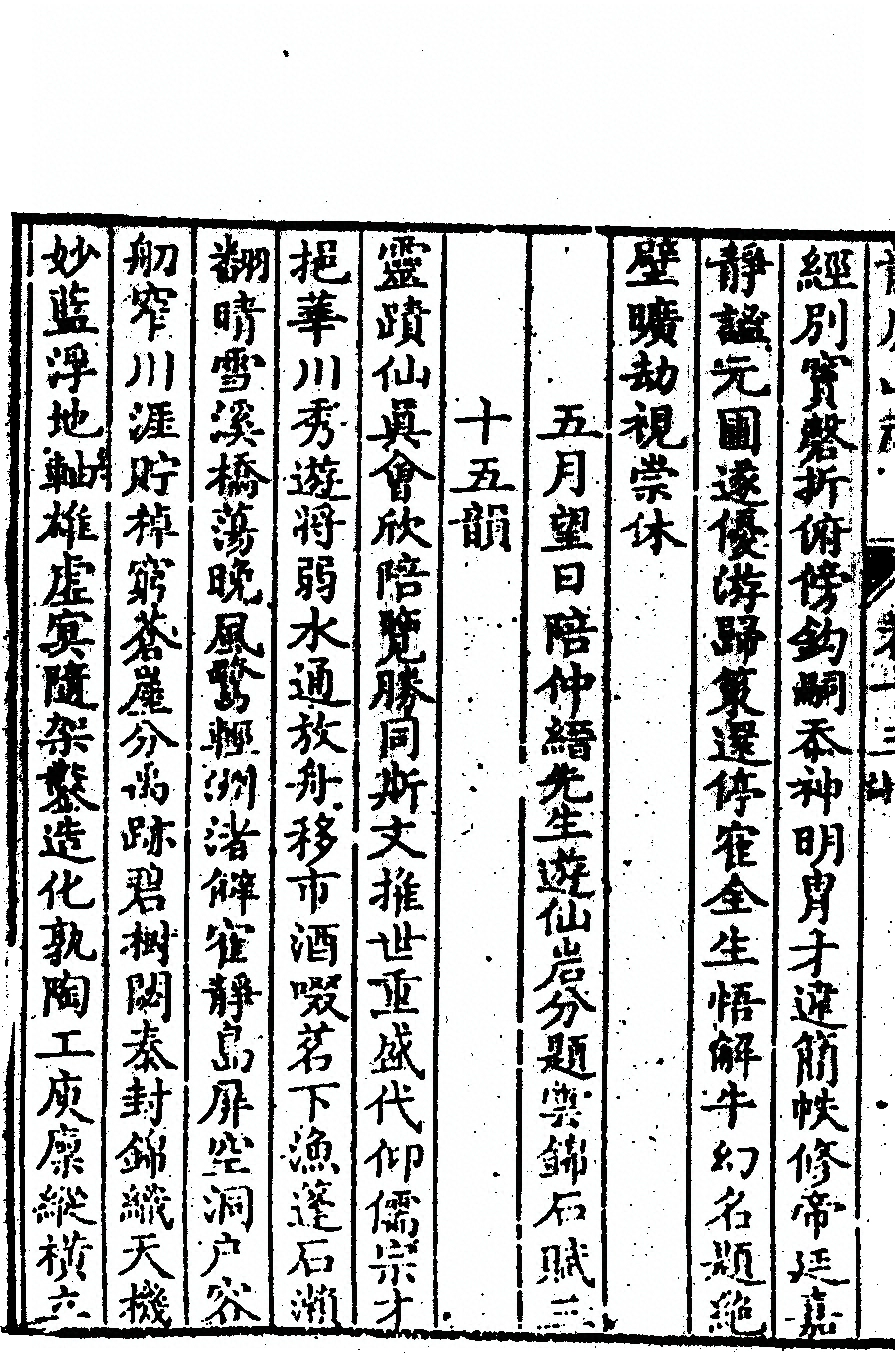 經別寶磬折俯傍鈎嗣忝神明胄才遑簡帙修帝廷嘉
靜謐元圃遂優游歸策還停寉全生悟解牛幻名題絶
壁曠劫視崇休
五月望日陪仲縉先生遊仙岩分題雲錦石賦三
十五韻
靈蹟仙眞會欣陪覽勝同斯文推世重盛代仰儒宗才
挹華川秀遊將弱水通放舟移市酒啜茗下漁蓬石瀨
翻晴雪溪橋蕩晚風鷖輕洲渚僻寉靜島扉空洞户容
舠窄川涯貯棹窮蒼崖分禹跡碧樹閟秦封錦織天機
妙藍浮地軸雄虛寘隨架鑿造化孰陶工庾廩縱橫立